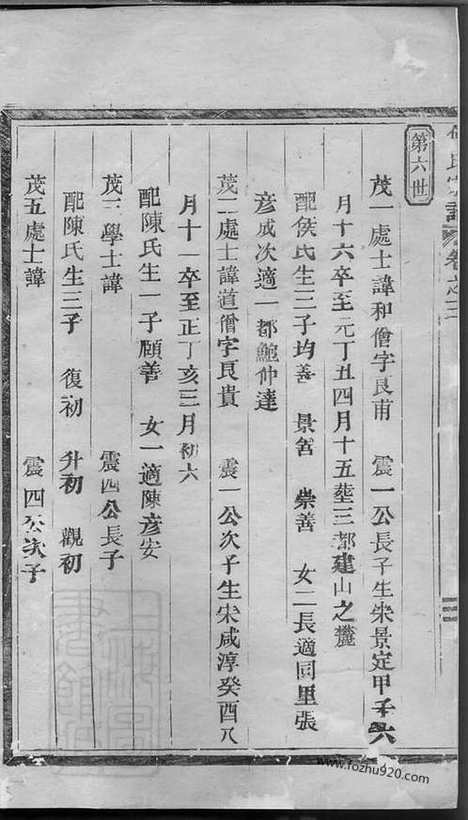 氏宗譜 卷之三
第六世
茂一處士諱和僧字良甫 震一公長子生宋景定甲子六
月十六卒至元丁丑四月十五塟三都建山之麓
配侯氏生三子均善 景善 崇善 女二長適同里張
彥成次適一都鮑仲達
茂二處士諱道僧字良貴 震一公次子生宋咸淳癸酉八
月十一卒至正丁亥三月初六
配陳氏生一子顧善 女一適陳彥安
茂三學士諱 震四公長子
配陳氏生三子 復初 升初 觀初
茂五處士諱 震四公次子
www.fozhu920.com